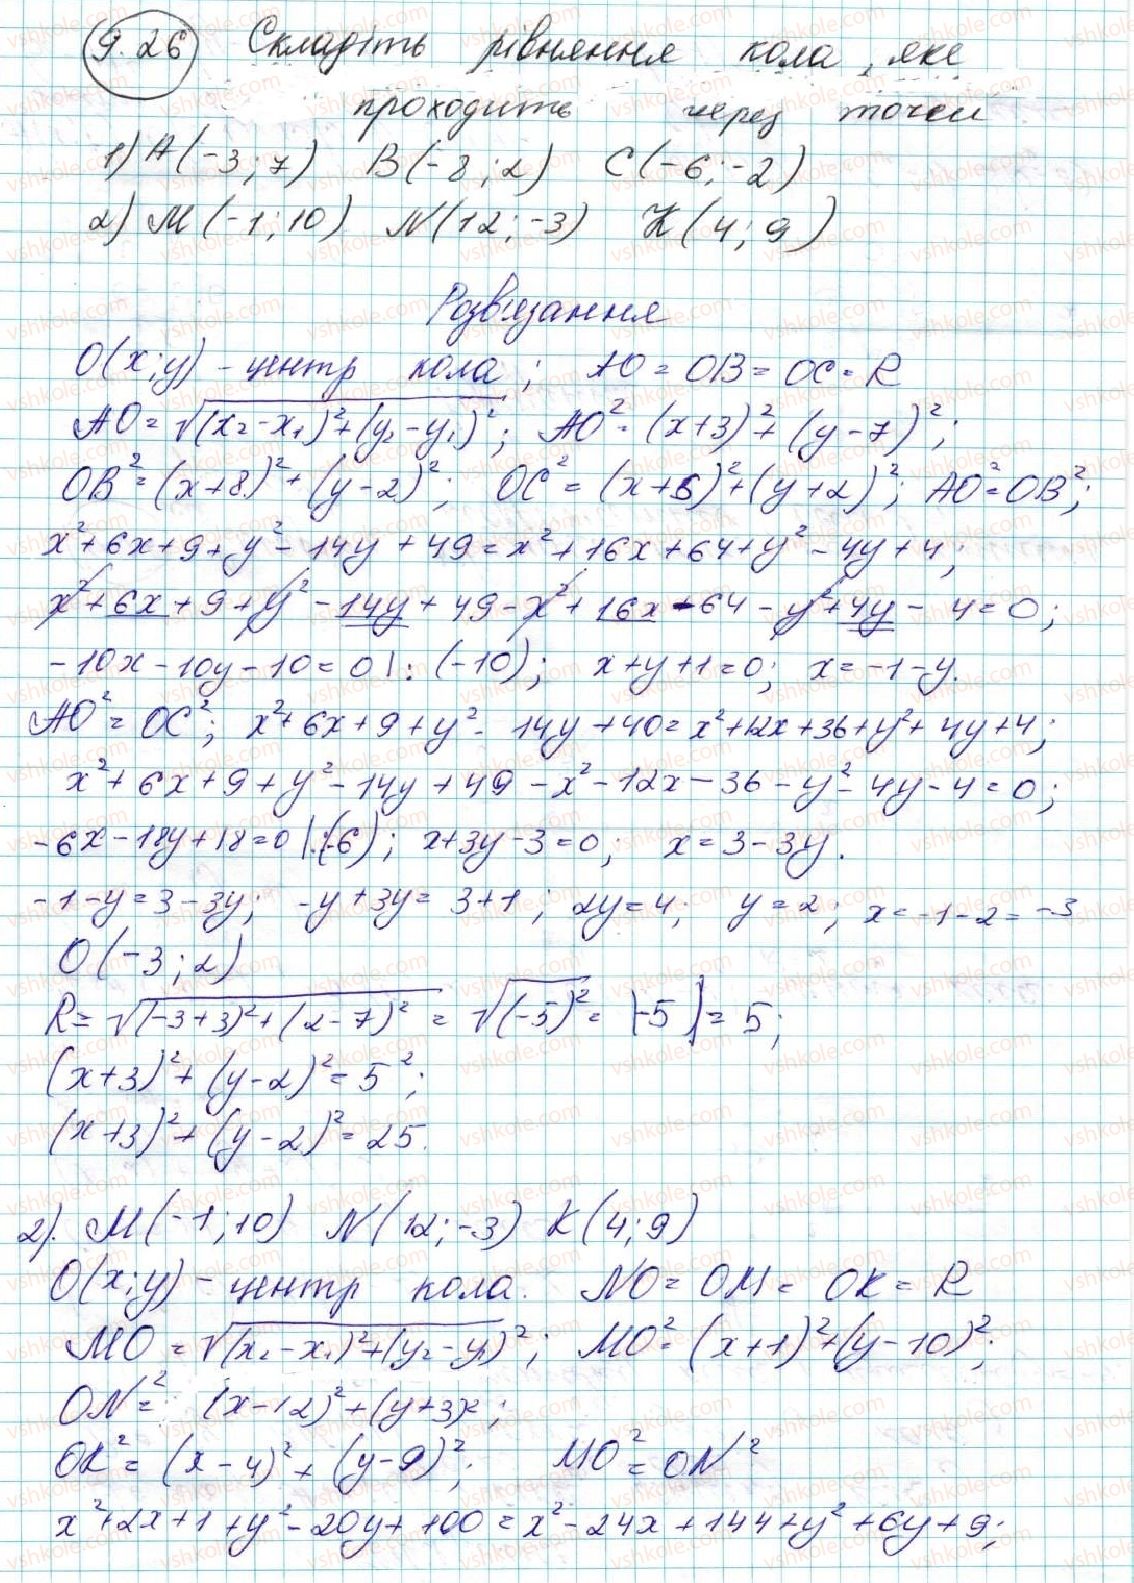 9.26 Складіть рівняння кола, яке
проходить через точки
1) A(-3;7) B(-8;2) C(-6;-2)
2) M(-1;10) N(12;-3) K(4;9)
Розв'язання
O(x;y) - центр кола; AO = OB = OC = R
AO = √((x₂-x₁)²+(y₂-y₁)²); AO² = (x+3)²+(y-7)²;
OB² = (x+8)²+(y-2)²; OC² = (x+6)²+(y+2)²; AO²=OB²;
x²+6x+9+y²-14y+49=x²+16x+64+y²-4y+4;
x²+6x+9+y²-14y+49-x²+16x-64-y²+4y-4=0;
-10x-10y-10=0 |:(-10); x+y+1=0; x=-1-y.
AO²=OC²; x²+6x+9+y²-14y+40=x²+12x+36+y²+4y+4;
x²+6x+9+y²-14y+49-x²-12x-36-y²-4y-4=0;
-6x-18y+18=0 |:(-6); x+3y-3=0; x=3-3y.
-1-y=3-3y; -y+3y=3+1; 2y=4; y=2; x=-1-2=-3
O(-3;2)
R=√((-3+3)²+(2-7)²)=√((-5)²)=|-5|=5;
(x+3)²+(y-2)²=5²;
(x+3)²+(y-2)²=25.
2). M(-1;10) N(12;-3) K(4;9)
O(x;y) - центр кола. NO=OM=OK=R
MO=√((x₂-x₁)²+(y₂-y₁)²); MO²=(x+1)²+(y-10)²;
ON²= (x-12)²+(y+3)²;
OK²=(x-4)²+(y-9)²; MO²=ON²
x²+2x+1+y²-20y+100=x²-24x+144+y²+6y+9;